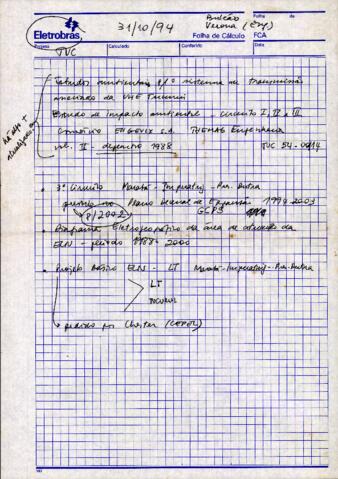 Eletrobras
31/10/94
Bulcão
Verona (Eng)
Folha de Cálculo
Folha de
FCA
Projeto
Calculado
Conferido
Data
TVC
Estudos ambientais p/o sistema de transmissão
associado da UHE Tucuruí
Estudo de impacto ambiental - circuito I, II e III
Consórcio ENGEVIX S.A. THEMAG Engenharia
vol. II - dezembro 1988
TUC 54-0014
há algo +
3º Circuito Marabá - Imperatriz - Pres. Dutra
previsto no Plano Decenal de Expansão 1994-2003
8/2002
GCPS
Diagrama Eletrogeográfico da área de atuação da
ELN - período 1988-2000
Projeto Básico ELN - LT Marabá-Imperatriz-Pres. Dutra
LT
TUCURUÍ
pedido por